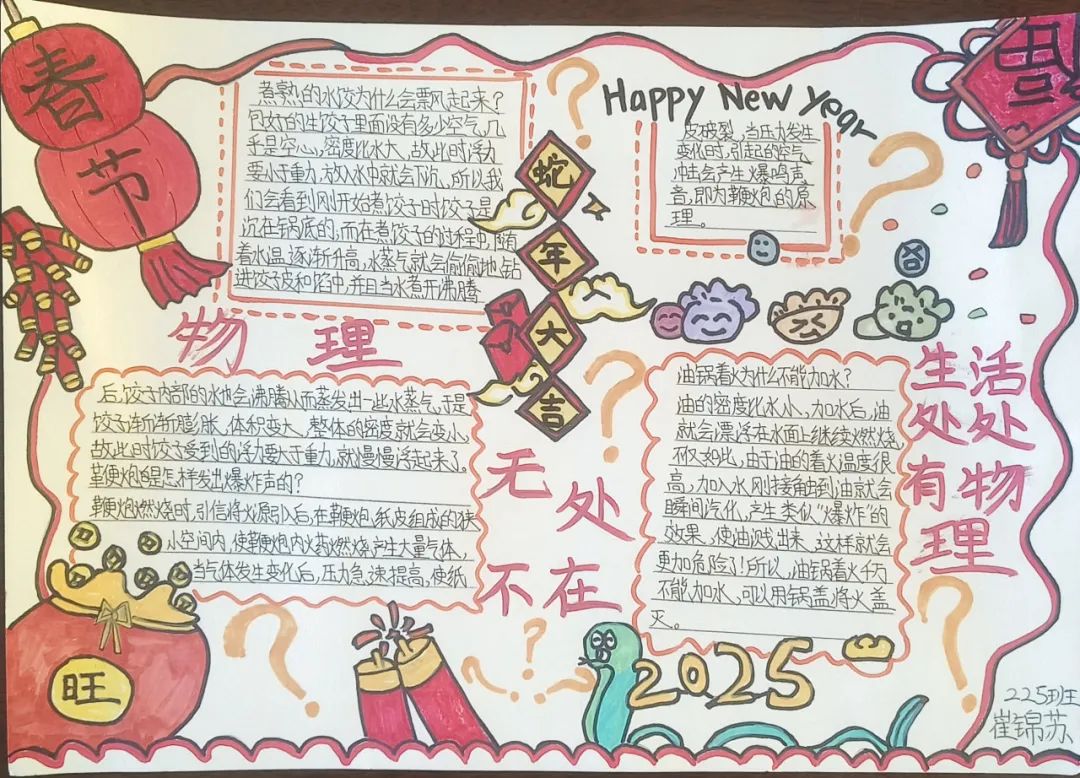 春
节
煮熟的水饺为什么会票风起来?
包好的生饺子里面没有多少空气,几
乎是空心,密度比水大,故此时浮力
要小于重力,放入水中就会下沉,所以我
们会看到刚开始煮饺子时饺子是
沉在锅底的,而在煮饺子的过程中,随
着水温逐渐升高,水蒸气就会偷偷地钻
进饺子皮和馅中,并且当水煮开沸腾
Happy New Year
皮破裂,当压力发生
变化时,引起的空气
冲击会产生爆鸣声
音,即为鞭炮的原
理。
蛇
年
大
吉
物理
后,饺子内部的水也会沸腾从而蒸发出一些水蒸气,于是
饺子渐渐膨胀,体积变大,整体的密度就会变小,
故此时饺子受到的浮力要大于重力,就慢慢浮起来了。
鞭炮是怎样发出爆炸声的?
鞭炮燃烧时,引信将火原引入后,在鞭炮纸皮组成的狭
小空间内,使鞭炮内火药燃烧,产生大量气体,
当气体发生变化后,压力急速提高,使纸
无处
不在
油锅着火为什么不能加水?
油的密度比水小,加水后,油
就会漂浮在水面上继续燃烧,
不仅如此,由于油的着火温度很
高,加入水,刚接触到油就会
瞬间汽化,产生类似“爆炸”的
效果,使油溅出来,这样就会
更加危险了!所以,油锅着火千万
不能加水,可以用锅盖将火盖
灭。
生活
处处
有物
理
旺
2025
225班
崔锦苏